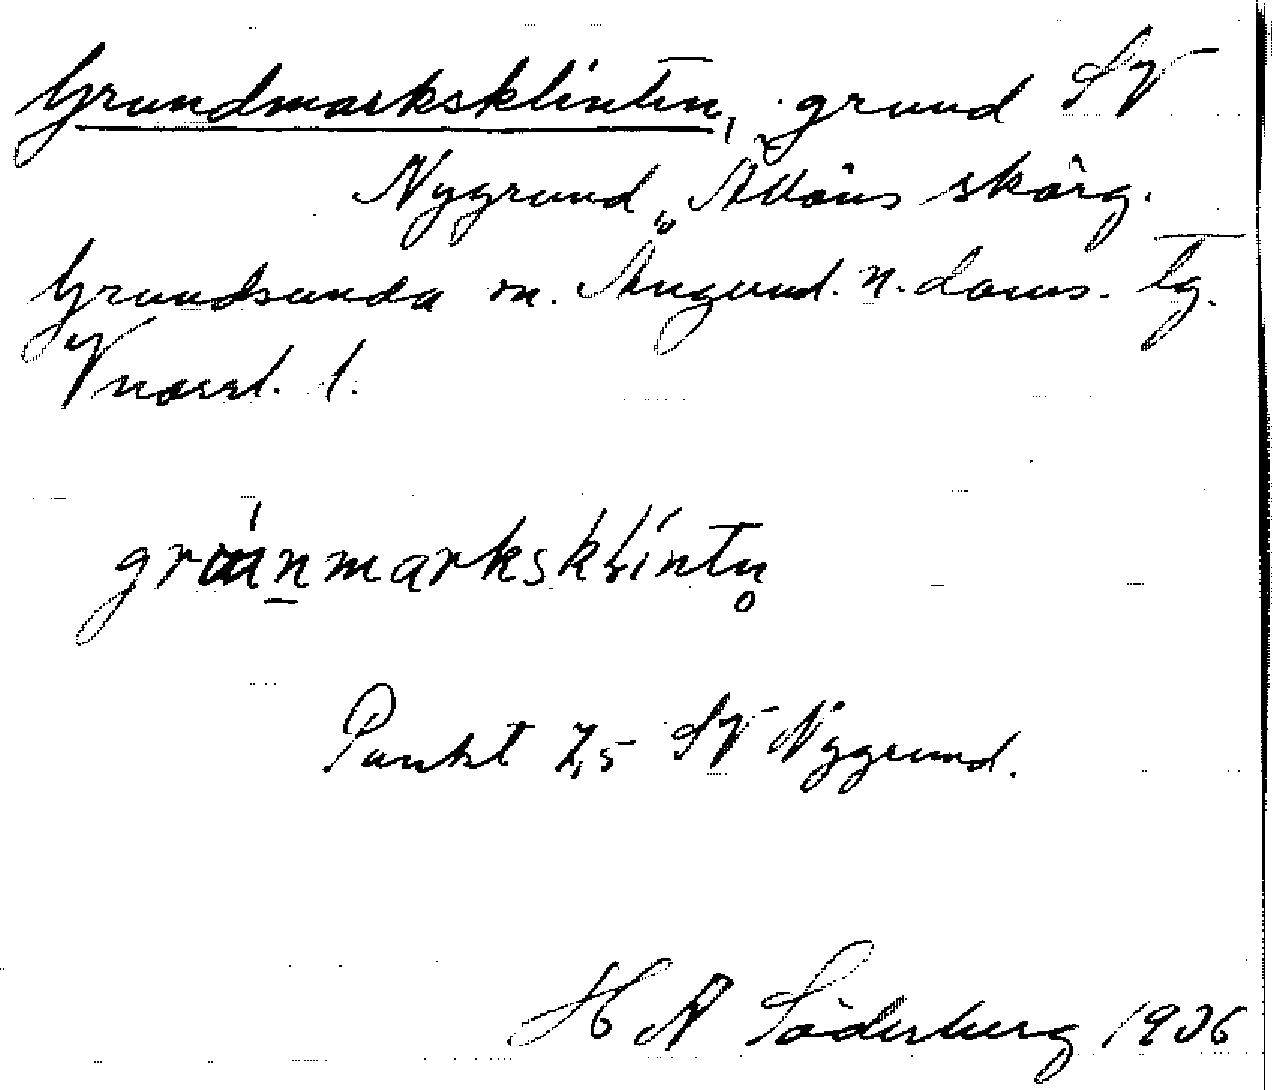 Grundmarksklinten, grund SV
Nygrund, Alnöns skärg.
Grundsunda sn. Ångerml. n. doms. tg.
Vnorrl. l.
grunnmarksklintn̥
Punkt 7,5 SV Nygrund.
H A Söderberg 1936